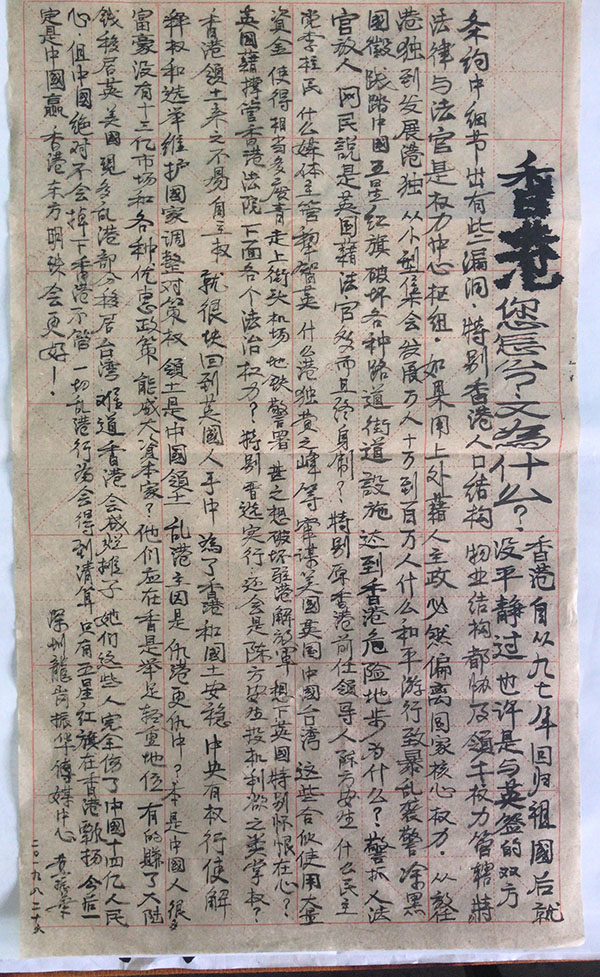 香港您怎兮又為什么？
香港自从九七年回归祖國后就
没平静过 也许是与英签的双方
条约中细节出有些漏洞．特别香港人口结构 物业结构都协及领千权力管辖．特
法律与法官是权力中心枢纽．如果用上外籍人主政 必然偏离国家核心权力．从
港独到发展港独 从小型集会发展万人十万到一百万人什么和平游行致暴乱袭警 涂黑
國徽 践踏中國五星红旗破坏各种路道街道設施 达到香港危险地步 为什么？警抓人法
官放人 网民說是英国籍法官多而且终身制？．特别原香港前任领导人陈方安生 什么民主
党李柱民 什么媒体主管黎智英 什么港独黄之峰等 串谋美國英国中國台湾 这些合伙使用大量
資金 使得相当多废青走上街头机场地铁警署 甚之想破坏驻港解放軍 想下英國特别怀恨在心？．
英国籍撑管香港法院下面各个法治权力？特别普选实行 还会是陈方安生投机利欲之类掌权？
香港領土来之不易 自主权 就很快回到英國人手中 為了香港和國土安稳 中央有权行使解
释权和选举维护國家调整对策权 領土是中國領土 乱港主因是仇港更仇中？本是中國人 很多
富豪没有十三亿市场和各种优惠政策 能成大資本家？他们在香是举足轻重地位 有的賺了大陆
钱移居英 美國 现多乱港部分移居台湾 难道香港会成烂摊子 她们这些人完全伤了中國十四亿人民
心．但中國绝对不会掉下香港不管 一切乱港行為会得到清算 只有五星红旗在香港飄扬 今后一
定是中國赢 香港东方明珠会更好！
深圳龍岗振华傳媒中心
二〇一九八二十五